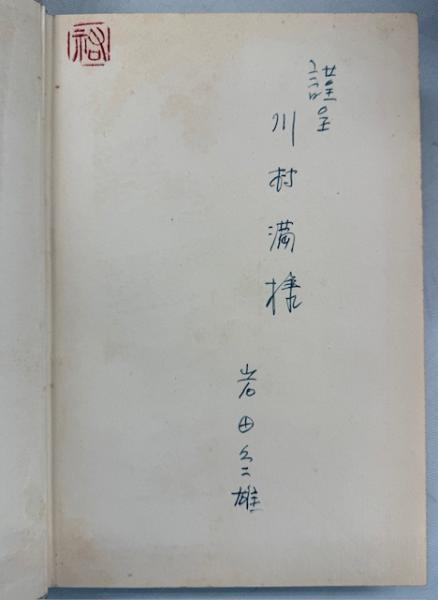 謹呈
川村満様
岩田宏雄